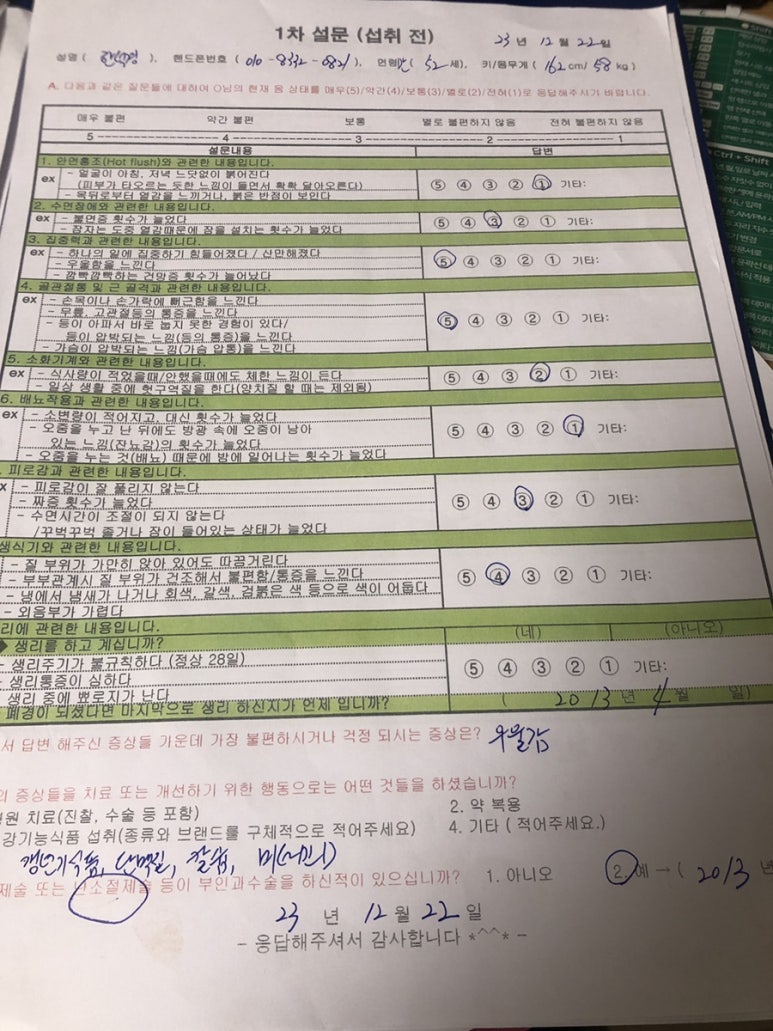 1차 설문 (섭취 전)
23 년 12 월 22 일
성명 ( ), 핸드폰번호 (010-8332-0821), 연령 ( 52 세), 키/몸무게 ( 162 cm/ 58 kg )
A. 다음과 같은 질문들에 대하여 O님의 현재 몸 상태를 매우(5)/약간(4)/보통(3)/별로(2)/전혀(1)로 응답해주시기 바랍니다.
매우 불편 약간 불편 보통 별로 불편하지 않음 전혀 불편하지 않음
5 4 3 2 1
설문내용 답변
1. 안면홍조(Hot flush)와 관련한 내용입니다.
ex - 얼굴이 아침, 저녁 느닷없이 붉어진다
(피부가 타오르는 듯한 느낌이 들면서 확확 달아오른다) ⑤ ④ ③ ② ① 기타:
- 목뒤로부터 열감을 느끼거나, 붉은 반점이 보인다
2. 수면장애와 관련한 내용입니다.
ex - 불면증 횟수가 늘었다 ⑤ ④ ③ ② ① 기타:
- 잠자는 도중 열감때문에 잠을 설치는 횟수가 늘었다
3. 집중력과 관련한 내용입니다.
ex - 하나의 일에 집중하기 힘들어졌다 / 산만해졌다
- 우울함을 느낀다 ⑤ ④ ③ ② ① 기타:
- 깜빡깜빡하는 건망증 횟수가 늘어났다
4. 골관절통 및 근 골격과 관련한 내용입니다.
ex - 손목이나 손가락에 뻐근함을 느낀다
- 무릎, 고관절등의 통증을 느낀다
- 등이 아파서 바로 눕지 못한 경험이 있다/ ⑤ ④ ③ ② ① 기타:
등이 압박되는 느낌(등의 통증)을 느낀다
- 가슴이 압박되는 느낌(가슴 압통)을 느낀다
5. 소화기계와 관련한 내용입니다.
ex - 식사량이 적었을때/안했을때에도 체한 느낌이 든다 ⑤ ④ ③ ② ① 기타:
- 일상 생활 중에 헛구역질을 한다(양치질 할 때는 제외됨)
6. 배뇨작용과 관련한 내용입니다.
ex - 소변량이 적어지고, 대신 횟수가 늘었다
- 오줌을 누고 난 뒤에도 방광 속에 오줌이 남아 ⑤ ④ ③ ② ① 기타:
있는 느낌(잔뇨감)의 횟수가 늘었다
- 오줌을 누는 것(배뇨) 때문에 밤에 일어나는 횟수가 늘었다
. 피로감과 관련한 내용입니다.
x - 피로감이 잘 풀리지 않는다
- 짜증 횟수가 늘었다 ⑤ ④ ③ ② ① 기타:
- 수면시간이 조절이 되지 않는다
/꾸벅꾸벅 졸거나 잠이 들어있는 상태가 늘었다
생식기와 관련한 내용입니다.
- 질 부위가 가만히 앉아 있어도 따끔거린다
- 부부관계시 질 부위가 건조해서 불편함/통증을 느낀다 ⑤ ④ ③ ② ① 기타:
- 냉에서 냄새가 나거나 회색, 갈색, 검붉은 색 등으로 색이 어둡다
- 외음부가 가렵다
리에 관련한 내용입니다.
◆ 생리를 하고 계십니까? (네) (아니오)
- 생리주기가 불규칙하다 (정상 28일)
- 생리통증이 심하다 ⑤ ④ ③ ② ① 기타:
생리 중에 뾰로지가 난다
폐경이 되셨다면 마지막으로 생리 하신지가 언제 입니까? ( 2013 년 4 월 일)
서 답변 해주신 증상들 가운데 가장 불편하시거나 걱정 되시는 증상은? 우울감
의 증상들을 치료 또는 개선하기 위한 행동으로는 어떤 것들을 하셨습니까?
병원 치료(진찰, 수술 등 포함) 2. 약 복용
강기능식품 섭취(종류와 브랜드를 구체적으로 적어주세요) 4. 기타 ( 적어주세요.)
갱년기식품, 단백질, 칼슘,
제술 또는 난소절제술 등이 부인과수술을 하신적이 있으십니까? 1. 아니오 2. 예 → ( 2013 년
23 년 12 월 22 일
- 응답해주셔서 감사합니다 *^^* -
Shift
Ctrl + Shift